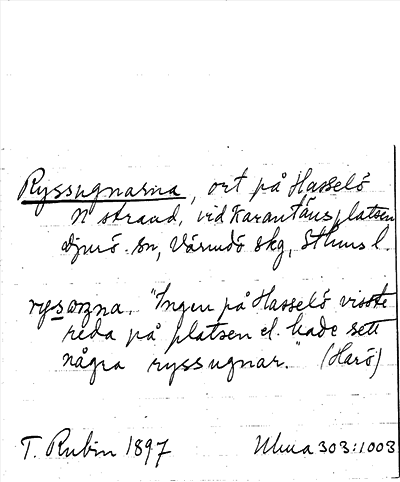 Ryssugnarna, ort på Hasselö
N strand, vid Karantänsplatsen
Djurö sn, Värmdö skg, Sthms l.
rysωŋna. "Ingen på Hasselö visste
reda på platsen el. hade sett
några ryssugnar." (Harö)
T. Rubin 1897 Uhua 303:1003